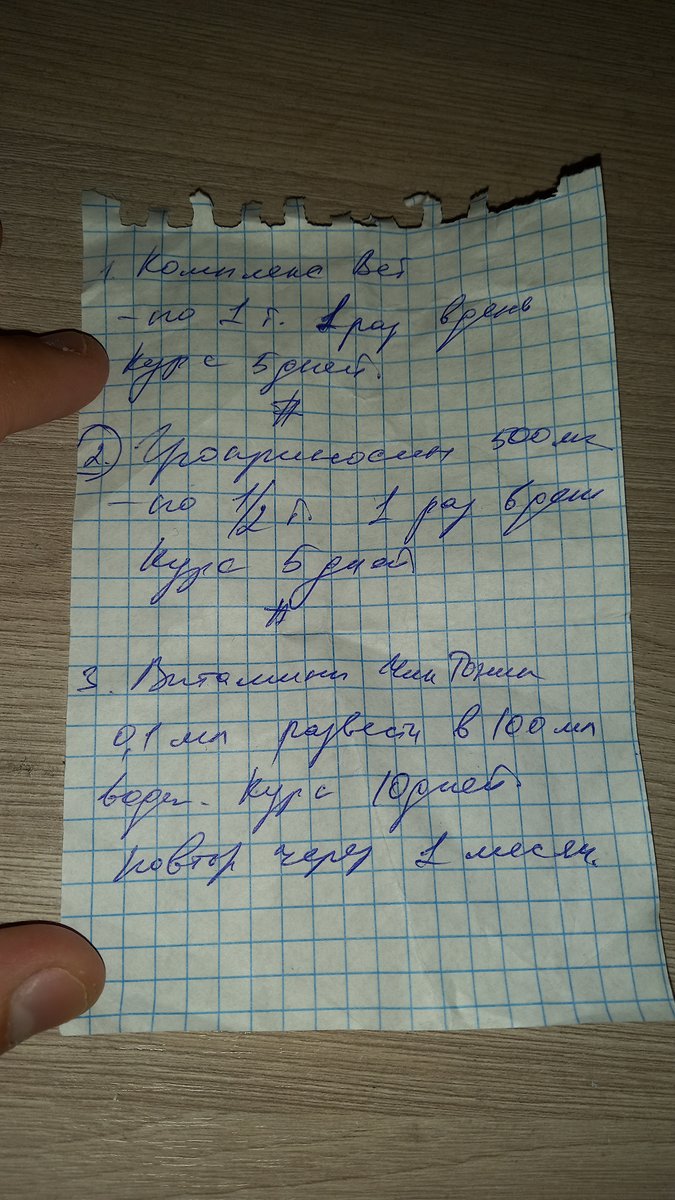 1. Комплекс Вет
- по 1 т. 1 раз в день
Курс 5 дней.
#
2. Гроприносин 500мг
- по 1/2 т. 1 раз в день
Курс 5 дней
#
3. Витамины Чик Тоник
0,1 мл развести в 100 мл
воды. Курс 10 дней.
повтор через 1 месяц.